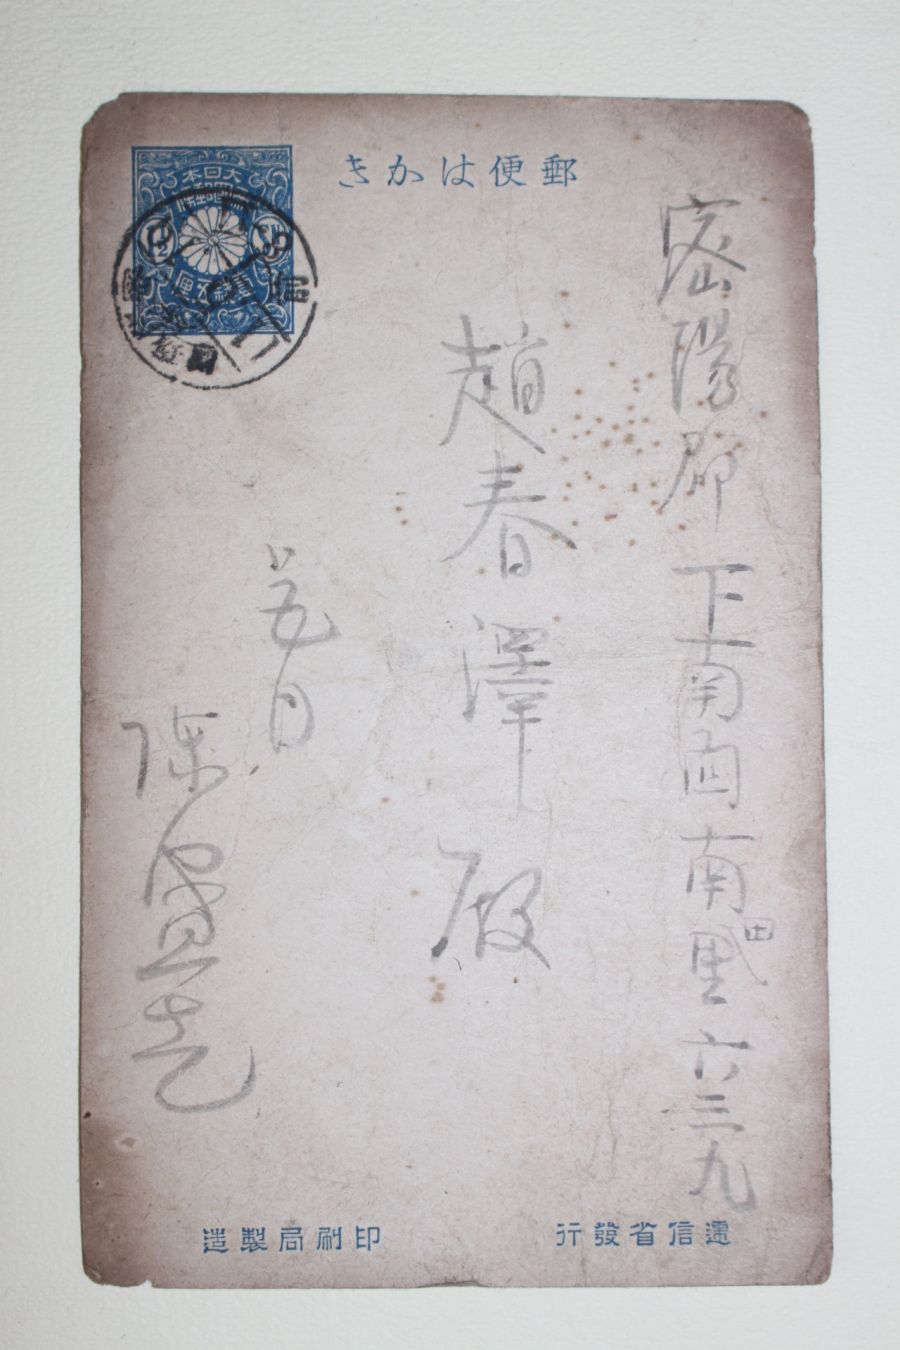 郵便はかき
大日本
帝國郵便
壹錢五厘
密陽郡下南面南田里六三九
趙春澤殿
五日
遞信省發行
印刷局製造